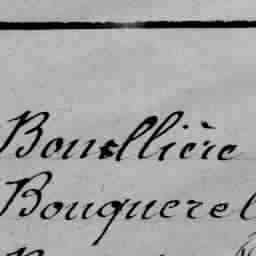 Bouillière
Bouquerel